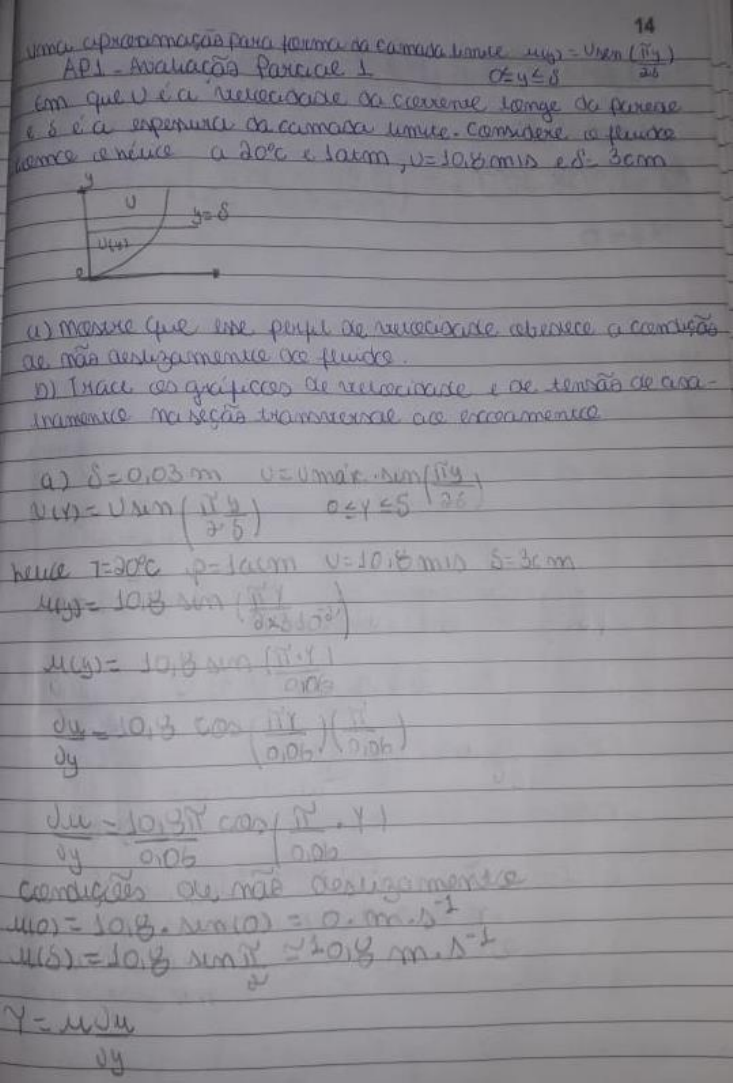 14
uma aproximação para forma da camada limite u(y) = U sen (πy/2δ)
AP1 - Avaliação Parcial 1 0≤y≤δ
Em que U é a velocidade da corrente longe da parede
e δ é a espessura da camada limite. Considere o fluido
como o hélice a 20°C e 1atm, U=10,8 m/s e δ= 3cm
y
U
y=δ
U(y)
0
a) Mostre que esse perfil de velocidade obedece a condução
de não deslizamento do fluido.
b) Trace os gráficos de velocidade e de tensão de cisa-
lhamento na seção transversal ao escoamento
a) δ=0,03 m U=Umáx.sen(πy/2δ)
U(Y)= U sen (πy/2δ) 0≤Y≤δ
T=20°C p=1atm U=10,8 m/s δ=3cm
u(y)= 10,8 sen (πY/2x3.10⁻²)
u(y)= 10,8 sen (π.Y/0,06)
∂u/∂y = 10,8 cos (πY/0,06)(π/0,06)
∂u/∂y = 10,8π/0,06 cos (π/0,06 . Y)
Condições de não deslizamento
u(0)= 10,8. sen(0) = 0. m.s⁻¹
u(δ)=10,8 sen π/2 = 10,8 m.s⁻¹
τ = μ ∂u/∂y